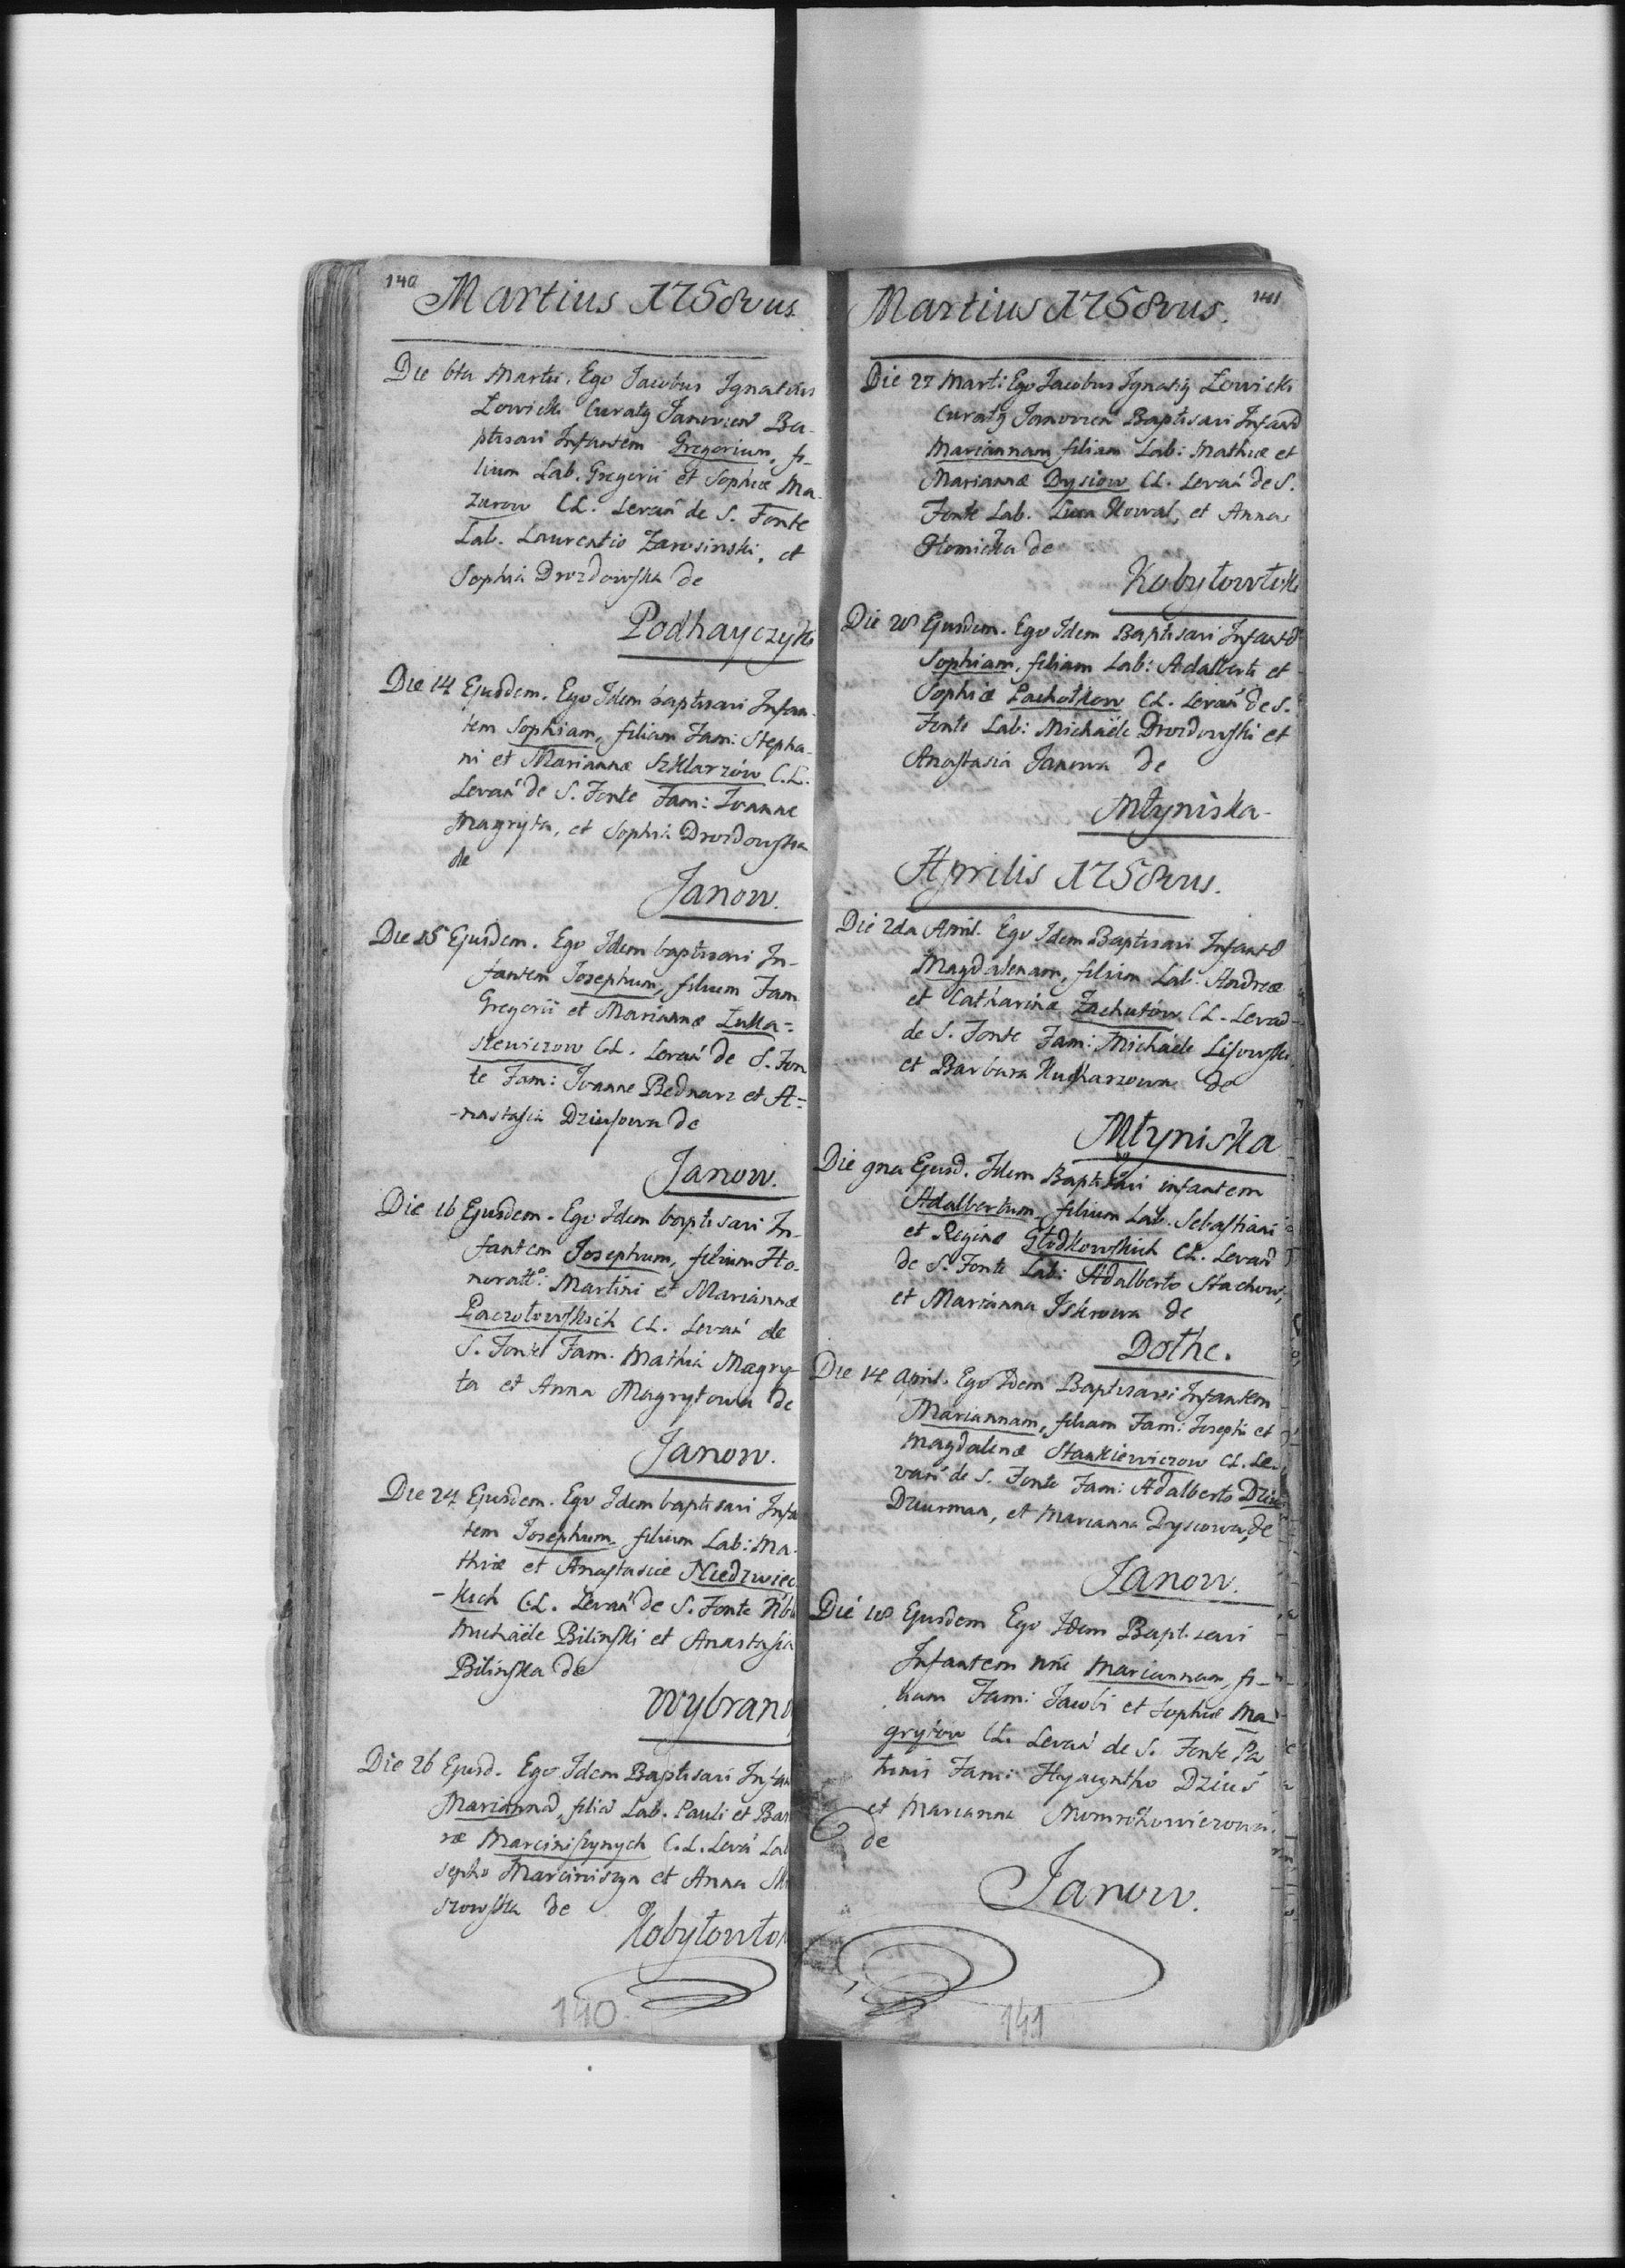 140
Martius 1758vus
Die 6ta Martii. Ego Jacobus Ignatius
Łowicki Curatg Janovien Ba-
ptisavi Infantem Gregorium, fi-
lium Lab. Gregorii et Sophiæ Ma-
zurow CL. Levań de S. Fonte
Lab. Laurentio Zarosinski, et
Sophia Drozdowska de
Podhayczyk
Die 14 Ejusdem. Ego Idem baptisavi Infan-
tem Sophiam, filiam Fam: Stepha-
ni et Mariannæ Szklarzow C.L.
Levań de S. Fonte Fam: Joanne
Magryta, et Sophia Drozdowska
de
Janow.
Die 15 Ejusdem. Ego Idem baptisavi In-
fantem Josephum, filium Fam
Gregorii et Mariannæ Łukà=
siewiczow CL. Levań de S. Fon
te Fam: Joanne Bednarz et A=
-nastasia Dziusowa de
Janow.
Die 16 Ejusdem. Ego Idem baptisavi In-
fantem Josephum, filium Ho-
noratto: Martini et Mariannæ
Paczołowskich CL. Levań de
S. Fonte Fam. Mathia Magry-
ta et Anna Magrytowa de
Janow.
Die 24 Ejusdem. Ego Idem baptisavi Infa
tem Josephum, filium Lab: Ma-
thiæ et Anastasiæ Niedzwiec
-kich C.L. Levań de S. Fonte
Michaële Bilinski et Anastasia
Bilinska de
Wybrano
Die 26 Ejusd. Ego Idem Baptisavi Infan
Mariannã, filiã Lab. Pauli et Bar
ræ Marciniszynych C.L. Levań Lab
sepho Marciniszyn et Anna
szowska de
Kobyłowło
140
141
Martius 1758vus.
Die 27 Marti: Ego Jacobus Ignatig Łowicki
Curatg Janovien Baptisavi Infant
Mariannam filiam Lab: Mathiæ et
Mariannæ Dysiow CL. Levań de S.
Fonte Lab. Luca Kowal, et Anna
Homicka de
Kobyłowłok
Die 28 Ejusdem. Ego Idem Baptisavi Infant
Sophiam, filiam Lab: Adalberti et
Sophiæ Pachołkow CL. Levań de S.
Fonte Lab: Michaële Drozdowski et
Anastasia Janowa de
Młyniska-
Aprilis 1758vus.
Die 2da April. Ego Idem Baptisavi Infant
Magdalenam, filiam Lab. Andreæ
et Catharinæ Zachutow CL. Levań
de S. Fonte Fam: Michaele Lisowski
et Barbara Kucharzowa de
Młyniska
Die 9na Ejusd. Idem Baptisavi infantem
Adalbertum, filium Lab. Sebastiani
et Reginæ Głodkowskich CL. Levań
de S. Fonte Lab: Adalberto Stachow,
et Marianna Iskrowa de
Dolhe.
Die 14 April. Ego Idem Baptisavi Infantem
Mariannam, filiam Fam: Josephi et
Magdalenæ Stankiewiczow CL. Le-
vań de S. Fonte Fam: Adalberto Dziu
Dziurman, et Marianna Dysiowa, de
Janow.
Die 18 Ejusdem Ego Idem Baptisavi
Infantem nñe Mariannam, fi-
liam Fam: Jacobi et Sophiæ Ma-
grytow CL. Levań de S. Fonte Pa
trinis Fam: Hyacyntho Dziuś
et Marianna
de
Janow.
141